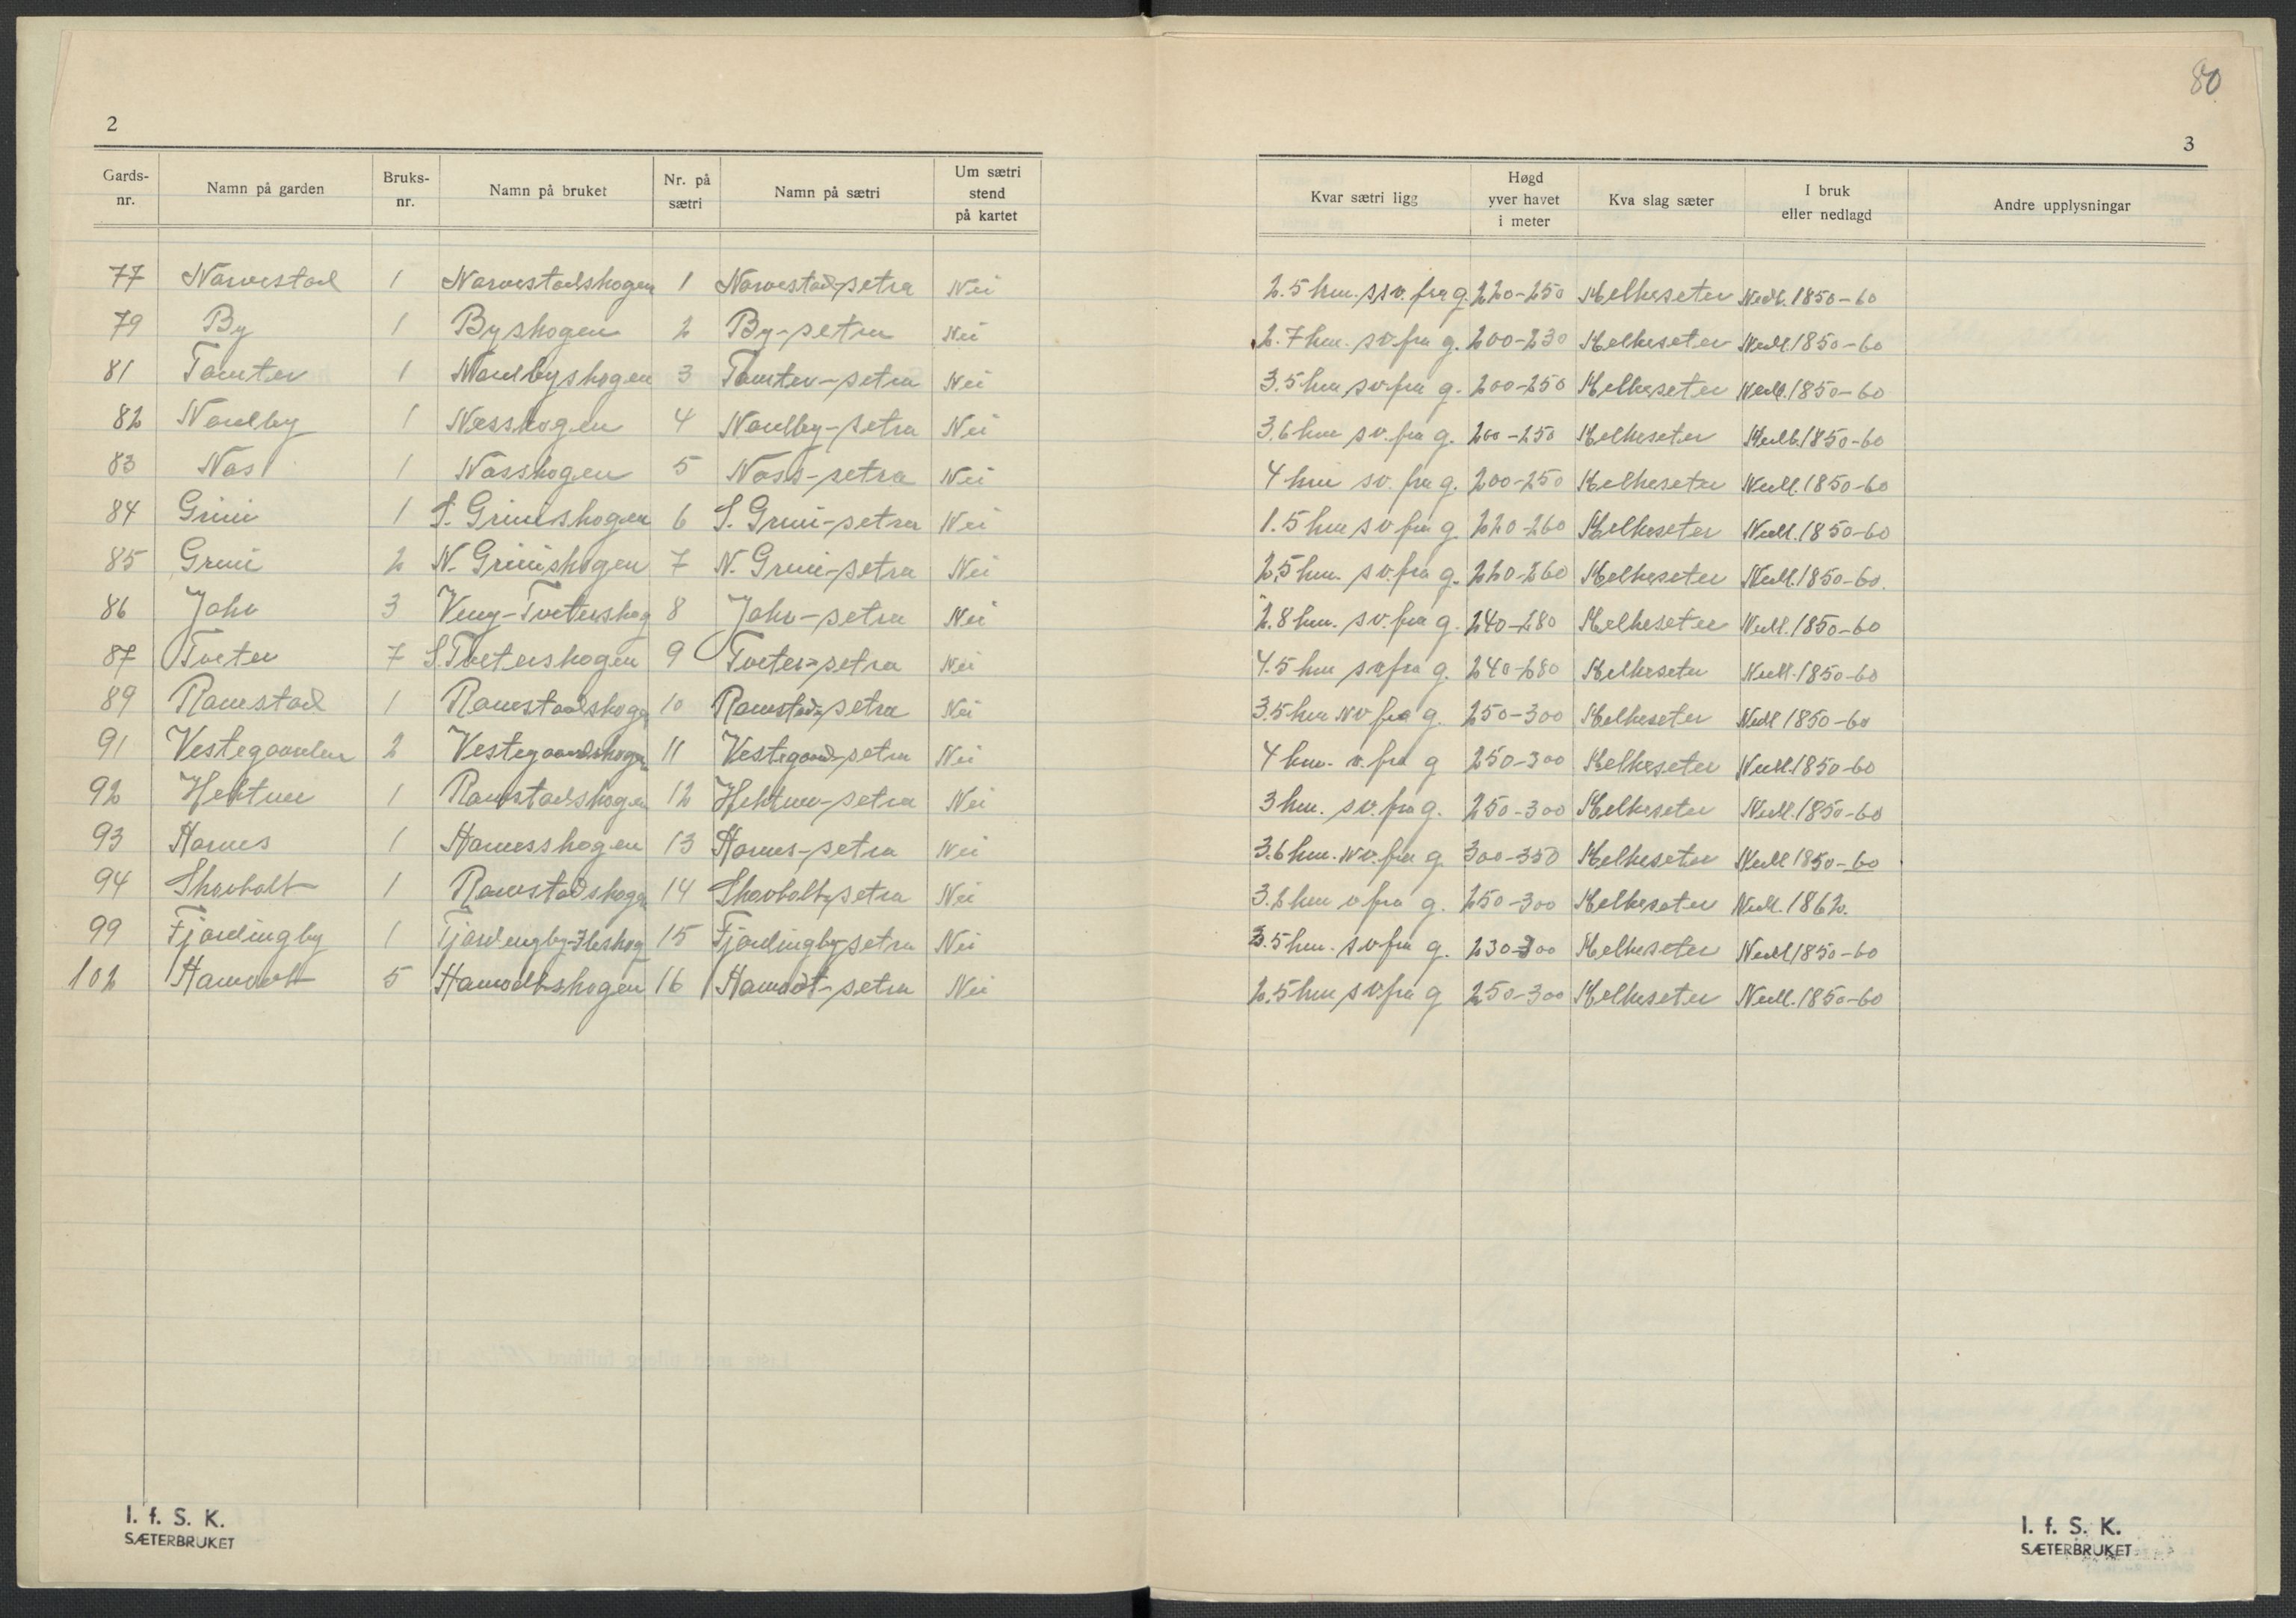 80
2
3
Gards-nr. Namn på garden Bruks-nr. Namn på bruket Nr. på sætri Namn på sætri Um sætri stend på kartet Kvar sætri ligg Høgd yver havet i meter Kva slag sæter I bruk eller nedlagd Andre upplysningar
77 Narvestad 1 Narvestadskogen 1 Narvestad-setra Nei 2.5 km. ssv. fra g. 220-250 Melkeseter Nedl. 1850-60
79 By 1 Byskogen 2 By-setra Nei 2.7 km. sv. fra g. 200-230 Melkeseter Nedl. 1850-60
81 Tomter 1 Nordbyskogen 3 Tomter-setra Nei 3.5 km sv. fra g. 200-250 Melkeseter Nedl. 1850-60
82 Nordby 1 Nesskogen 4 Nordby-setra Nei 3.6 km sv. fra g. 200-250 Melkeseter Nedl. 1850-60
83 Nas 1 Nasskogen 5 Nass-setra Nei 4 km sv. fra g. 200-250 Melkeseter Nedl. 1850-60
84 Grini 1 S. Griniskogen 6 S. Grini-setra Nei 1.5 km sv fra g. 220-260 Melkeseter Nedl. 1850-60
85 Grini 2 N. Griniskogen 7 N. Grini-setra Nei 2.5 km. sv. fra g. 220-260 Melkeseter Nedl. 1850-60.
86 Jahr 3 Tveterskog 8 Jahr-setra Nei 2.8 km. sv. fra g. 240-280 Melkeseter Nedl. 1850-60
87 Tveter 7 S. Tveterskogen 9 Tveter-setra Nei 4.5 km sv fra g. 240-280 Melkeseter Nedl. 1850-60
89 Ramstad 1 Ramstadskogen 10 Ramstad-setra Nei 3.5 km NV fra g. 250-300 Melkeseter Nedl 1850-60
91 Vestegaarden 2 Vestegaardskogen 11 Vestegaard-setra Nei 4 km. v. fra g 250-300 Melkeseter Nedl. 1850-60
92 Hektner 1 Ramstadskogen 12 Hektner-setra Nei 3 km. sv. fra g. 250-300 Melkeseter Nedl. 1850-60
93 Harnes 1 Harnesskogen 13 Harnes-setra Nei 3.6 km. NV. fra g 300-350 Melkeseter Nedl 1850-60
94 Skovholt 1 Ramstadskogen 14 Skovholt-setra Nei 3.2 km v fra g. 250-300 Melkeseter Nedl. 1862.
99 Fjerdingby 1 15 Fjerdingby-setra Nei 3.5 km. sv fra g. 230-300 Melkeseter Nedl 1850-60
102 5 16 Nei 2.5 km sv fra g 250-300 Melkeseter Nedl. 1850-60
I. f. S. K.
SÆTERBRUKET
I. f. S. K.
SÆTERBRUKET